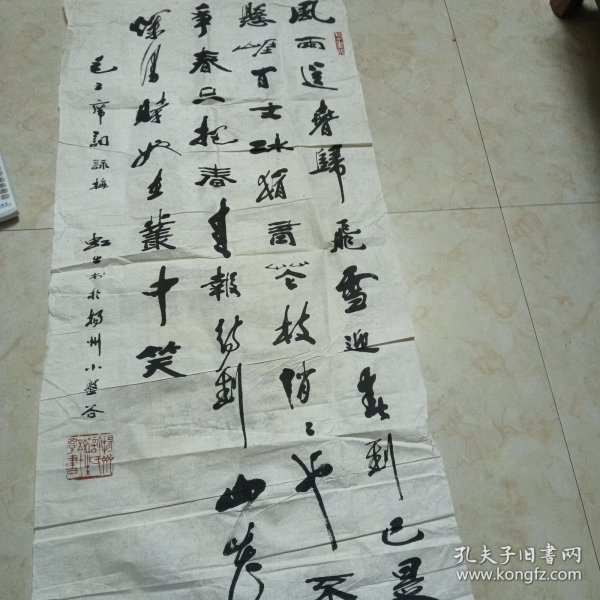 風雨送春歸飛雪迎春到已是
懸崖百丈冰猶有花枝俏〻也不
爭春只把春來報待到山花
爛漫時她在叢中笑
毛主席詞詠梅 虹生书於揚州小盤谷
孔夫子旧书网
www.kongfz.com